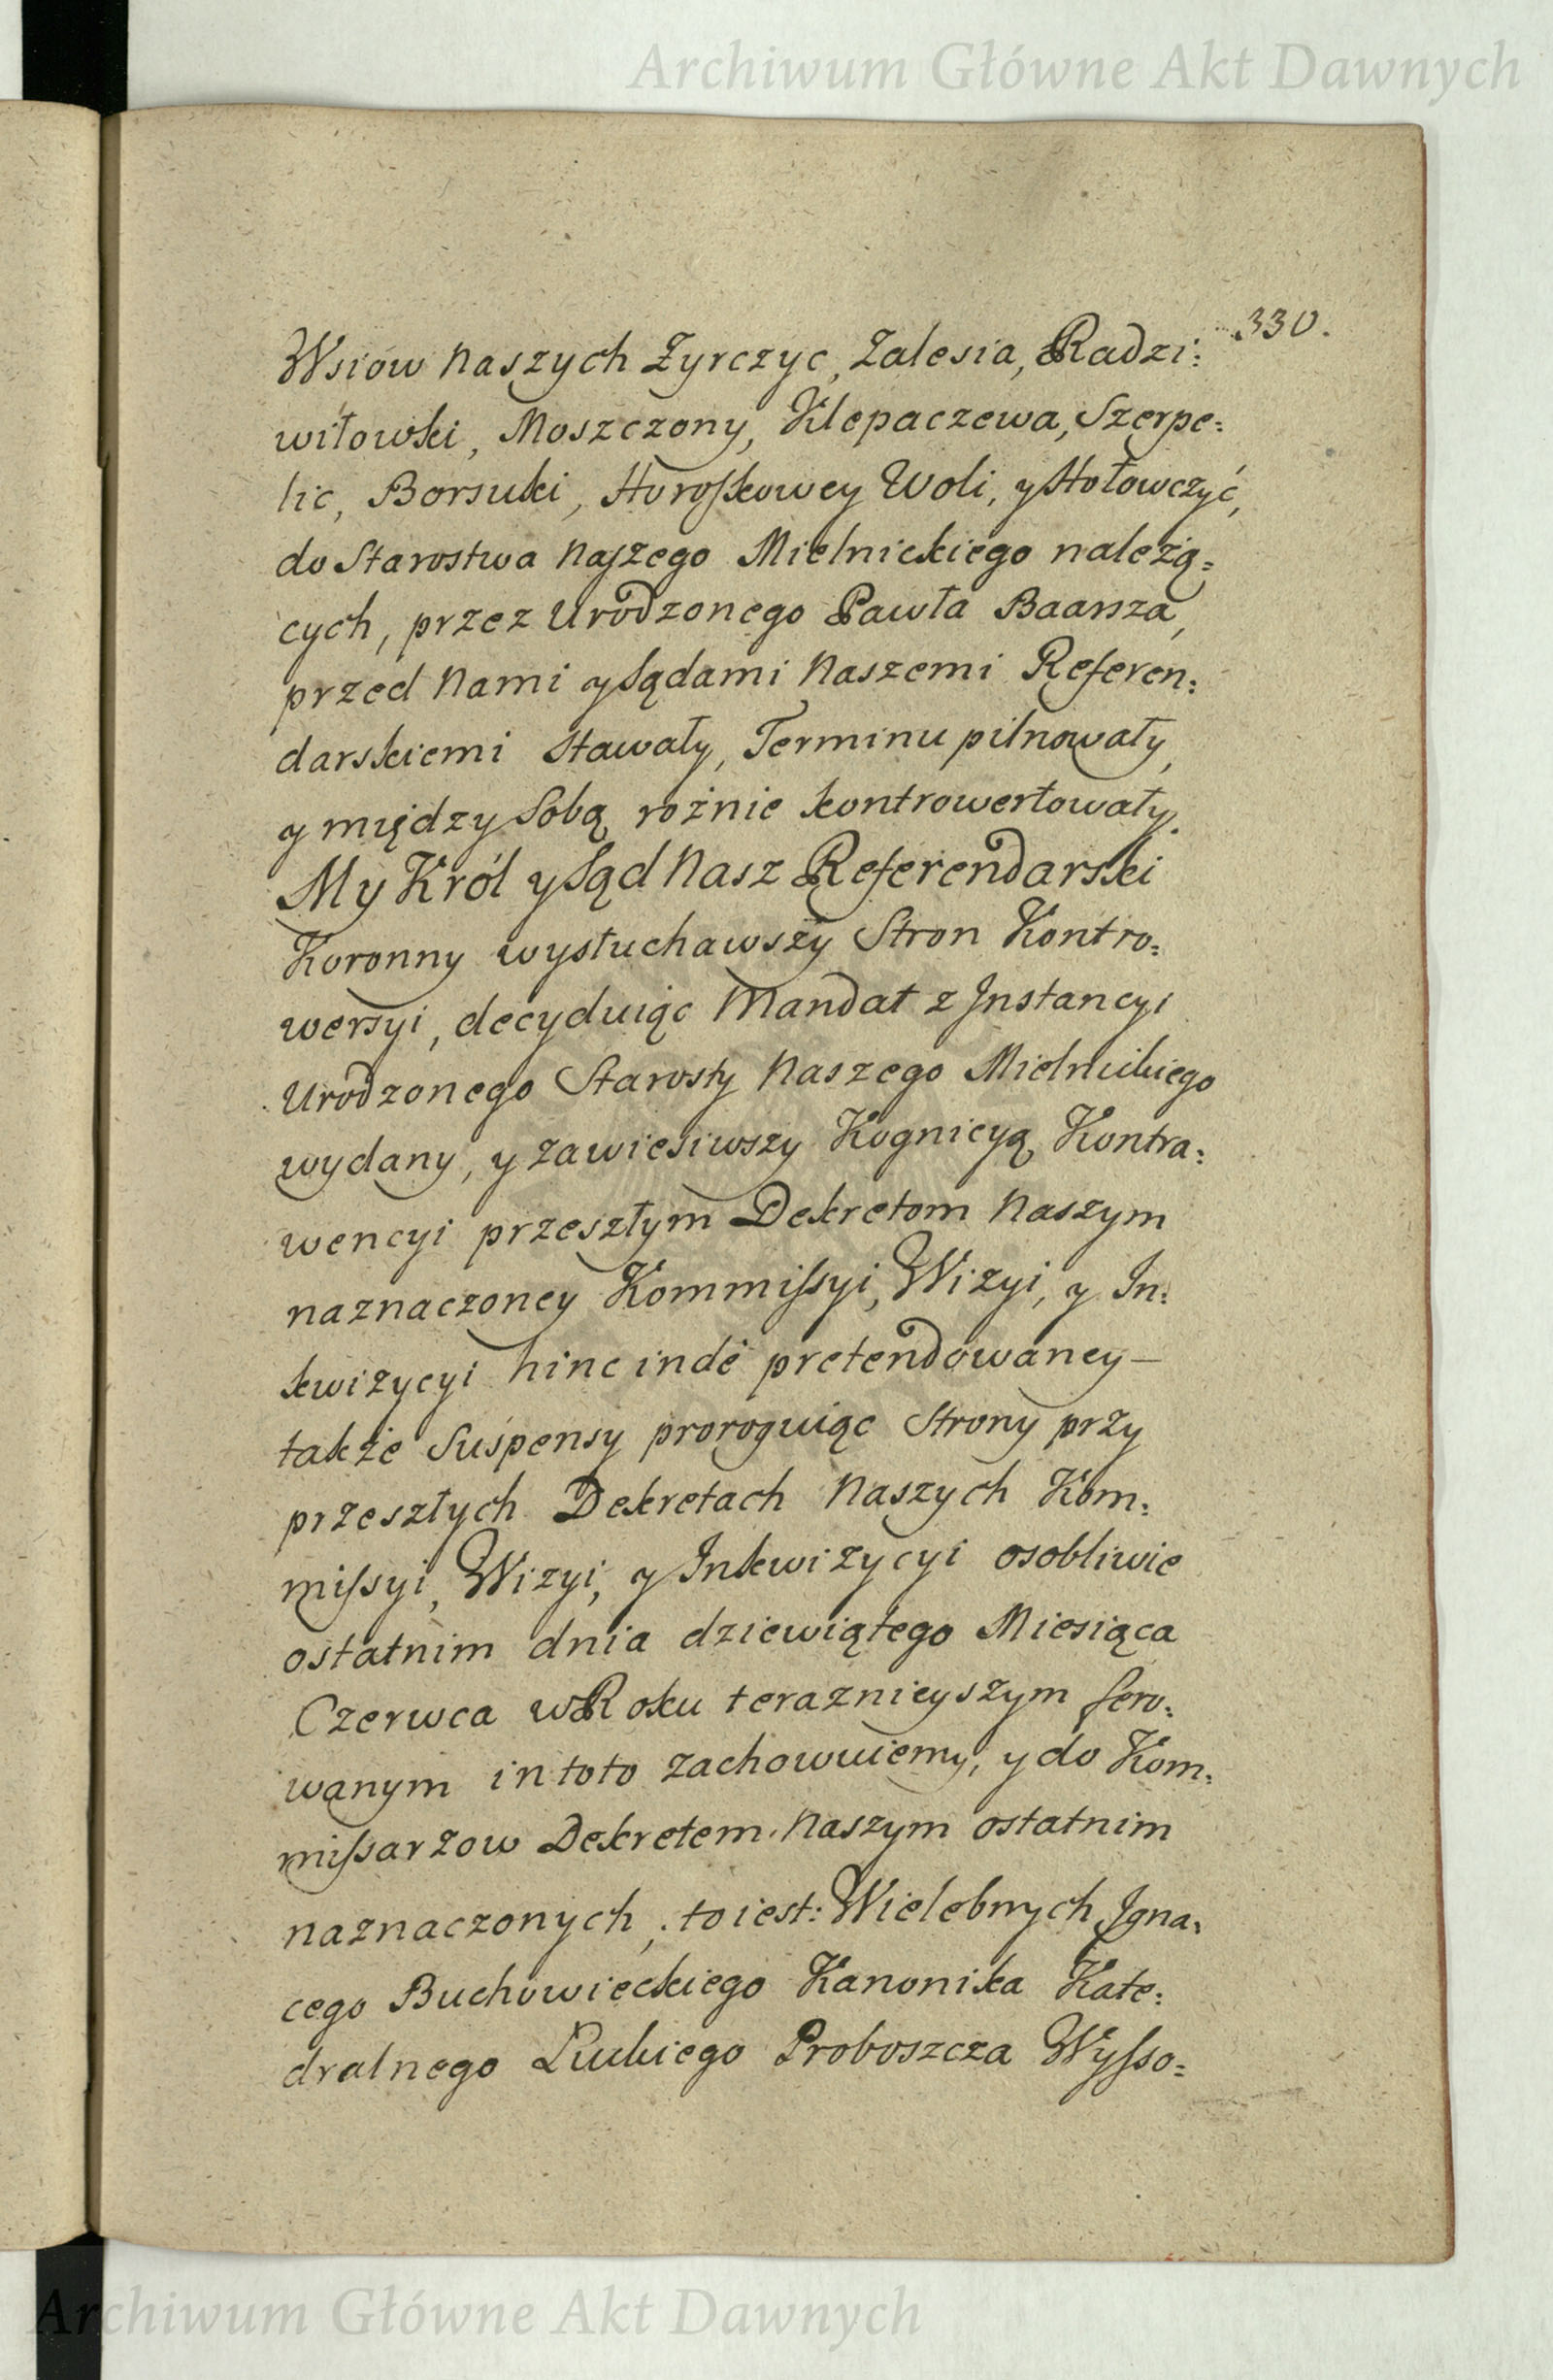 Archiwum Główne Akt Dawnych
330.
Wsiów Naszych Żyrczyc, Zalesia, Radzi:
wiłowki, Moszczony, Klepaczewa, Szerpe:
lic, Borsuki, Horoszkowey Woli, y Hołowczyć,
do Starostwa Naszego Mielnickiego należą:
cych, przez Urodzonego Pawła Baarsza,
przed Nami y Sądami Naszemi Referen:
darskiemi Stawały, Terminu pilnowały,
y między Sobą rożnie kontrowertowały.
My Król y Sąd Nasz Referendarski
Koronny wysłuchawszy Stron Kontro:
wersyi, decyduiąc Mandat z Jnstancyi
Urodzonego Starosty Naszego Mielnickiego
wydany, y zawiesiwszy Kognicyą Kontra:
wencyi przeszłym Dekretom Naszym
naznaczoney Kommissyi, Wizyi, y In:
kwizycyi hinc inde pretendowaney—
także Suspensy proroguiąc Strony przy
przeszłych Dekretach Naszych Kom:
missyi, Wizyi, y Inkwizycyi osobliwie
ostatnim dnia dziewiątego Miesiąca
Czerwca w Roku teraznieyszym fero:
wanym in toto zachowuiemy, y do Kom:
missarzow Dekretem Naszym ostatnim
naznaczonych, to iest: Wielebnych Jgna:
cego Buchowieckiego Kanonika Kate:
dralnego Łuckiego Proboszcza Wysso:
Archiwum Główne Akt Dawnych